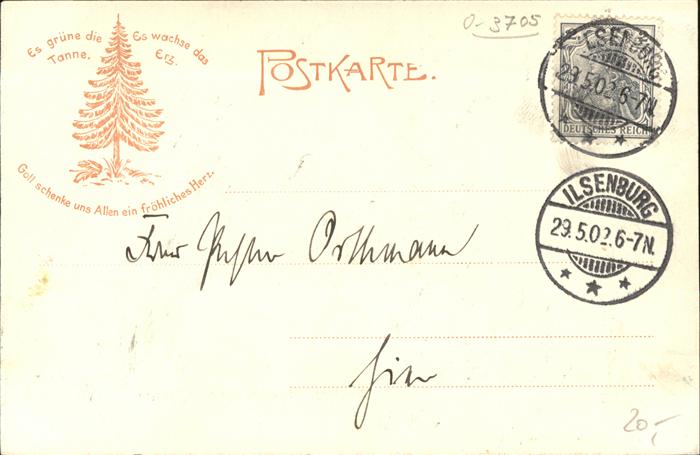 Es grüne die Tanne.
Es wachse das Erz.
Gott schenke uns Allen ein fröhliches Herz.
POSTKARTE.
0-3705
ILSENBURG
29.5.02.6-7N.
DEUTSCHES REICH
ILSENBURG
29.5.02.6-7N.
Frau Pastor Orthmann
hier
20,-